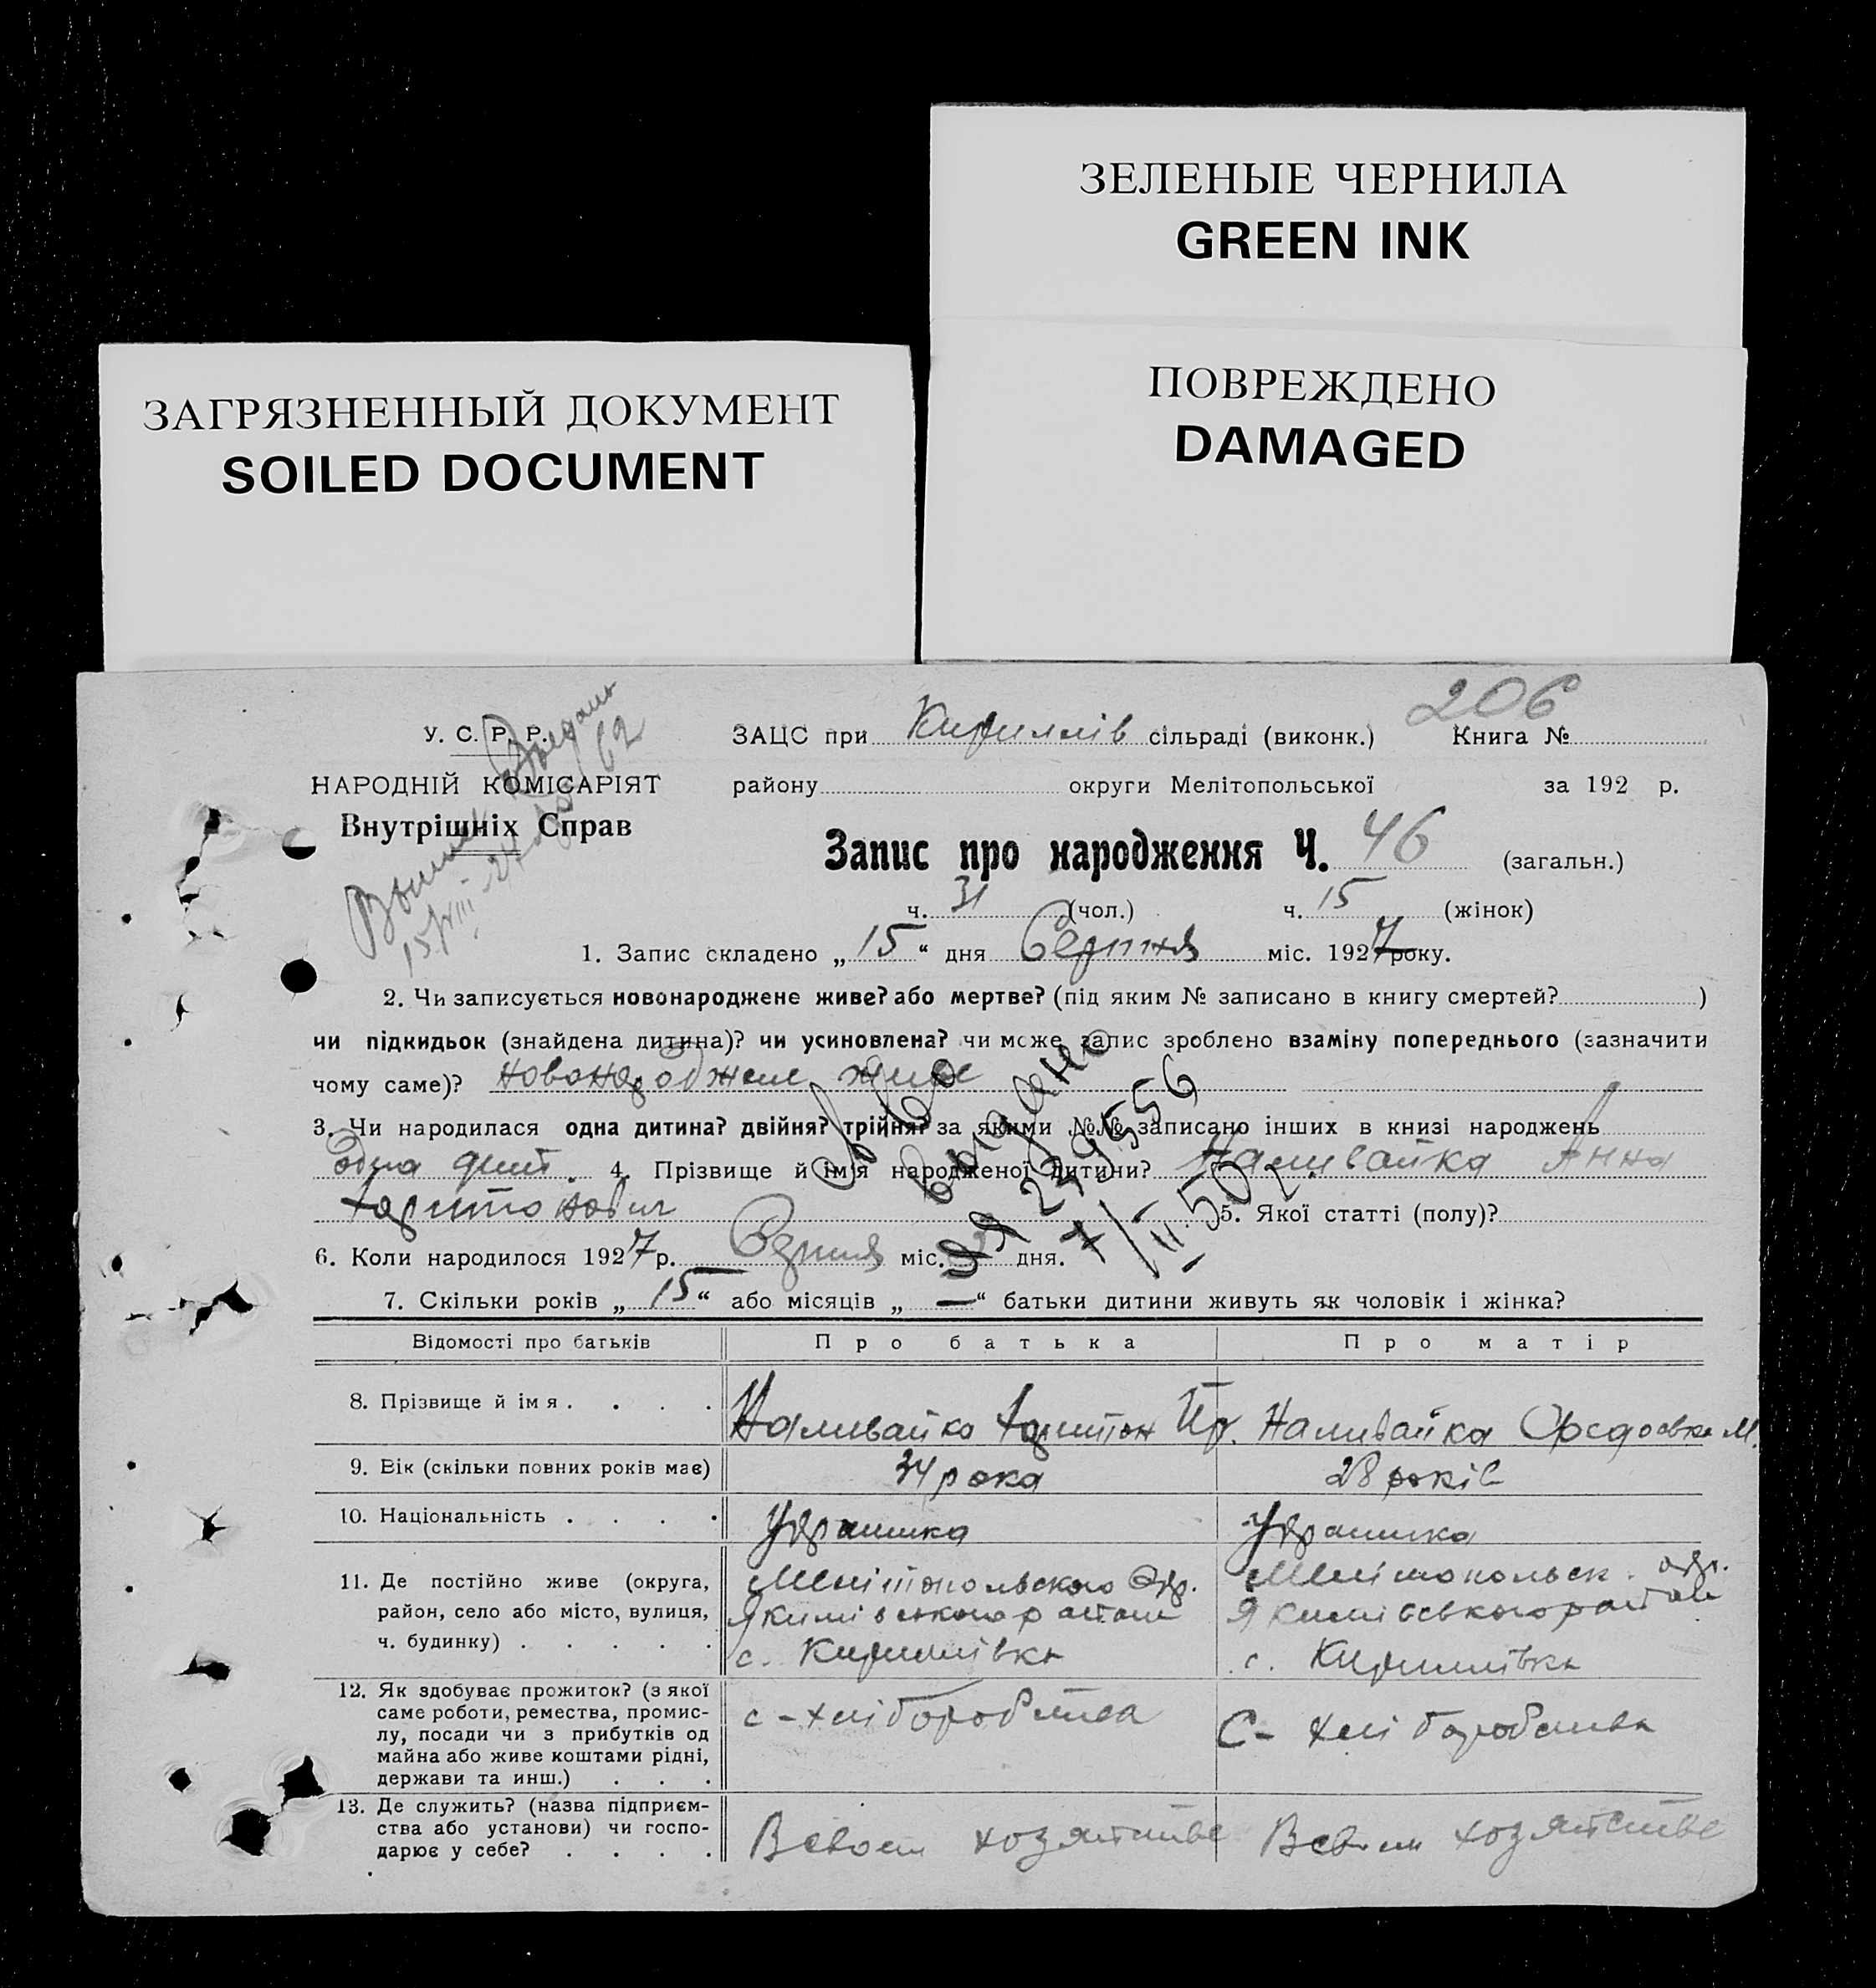 ЗЕЛЕНЫЕ ЧЕРНИЛА
GREEN INK
ПОВРЕЖДЕНО
DAMAGED
ЗАГРЯЗНЕННЫЙ ДОКУМЕНТ
SOILED DOCUMENT
206
У. С. Р. Р.
НАРОДНІЙ КОМІСАРІЯТ
Внутрішніх Справ
ЗАЦС при Кирилів сільраді (виконк.) Книга №
району округи Мелітопольської за 192 р.
Запис про народження Ч. 46 (загальн.)
ч. 31 (чол.) ч. 15 (жінок)
1. Запис складено „ 15 “ дня Серпня міс. 1927 року.
2. Чи записується новонароджене живе? або мертве? (під яким № записано в книгу смертей? )
чи підкидьок (знайдена дитина)? чи усиновлена? чи може запис зроблено взаміну попереднього (зазначити
чому саме)? новонароджене живе
3. Чи народилася одна дитина? двійня? трійня? за якими №№ записано інших в книзі народжень
одна дит 4. Прізвище й ім'я народженої дитини? Наливайка Анна
Харитонович 5. Якої статті (полу)?
6. Коли народилося 1927 р. Серпня міс. дня.
7. Скільки років „ 15 “ або місяців „ — “ батьки дитини живуть як чоловік і жінка?
Відомості про батьків Про батька Про матір
8. Прізвище й ім'я . . . . Наливайка Харитон Наливайка М.
9. Вік (скільки повних років має) 34 рока 28 років
10. Національність . . . .
11. Де постійно живе (округа, Мелітопольского Окр. Мелітопольск. окр.
район, село або місто, вулиця, Якимівского район Якимівського район
ч. будинку) . . . . . с. Кирилівка с. Кирилівка
12. Як здобуває прожиток? (з якої
саме роботи, ремества, промис- с-хліборобства С- хліборобства
лу, посади чи з прибутків од
майна або живе коштами рідні,
держави та инш.) . . .
13. Де служить? (назва підприєм-
ства або установи) чи госпо- Всвоем хозяйстве Всвоем хозяйстве
дарює у себе? . . . .
Св-во
выдано
239556
7/II.50 г.